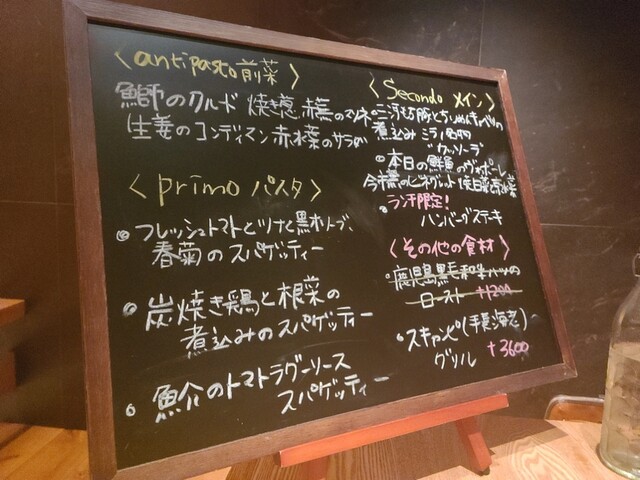 〈antipasto 前菜〉
鰤のクルード 焼き葱、赤蕪のマリネ
生姜のコンディマン 赤水菜のサラダ
〈primo パスタ〉
フレッシュトマトとツナと黒オリーブ、
春菊のスパゲッティー
炭焼き鶏と根菜の
煮込みのスパゲッティー
魚介のトマトラグーソース
スパゲッティー
〈Secondo メイン〉
三河もち豚とちりめんキャベツの
煮込み ミラノ名物
"カッソーラ"
本日の鮮魚のヴァポーレ
ランチ限定!
ハンバーグステーキ
〈その他の食材〉
鹿児島黒毛和牛ハツの
ロースト +1200
スキャンピ(手長海老)
グリル +3600